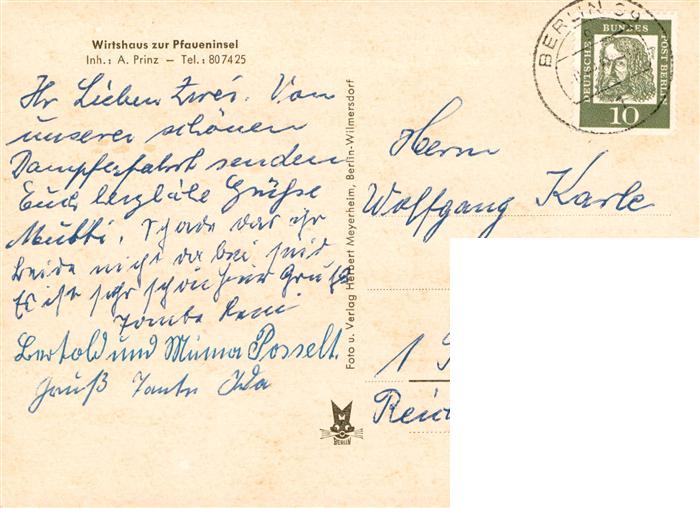 Wirtshaus zur Pfaueninsel
Inh.: A. Prinz – Tel.: 80 74 25
Ihr Lieben Zwei. Von
unserer schönen
Dampferfahrt senden
Euch herzliche Grüße
Mutti. Schade das ihr
beide nicht da bei seid
Es ist sehr schön hier Gruß
Tante
Bertold und Mima Posselt.
Gruß Tante Ida
Foto u. Verlag Herbert Meyerheim, Berlin-Wilmersdorf
BERLIN
BERLIN 39
DEUTSCHE BUNDESPOST BERLIN
10
Herrn
Wolfgang Karle
1
Reic